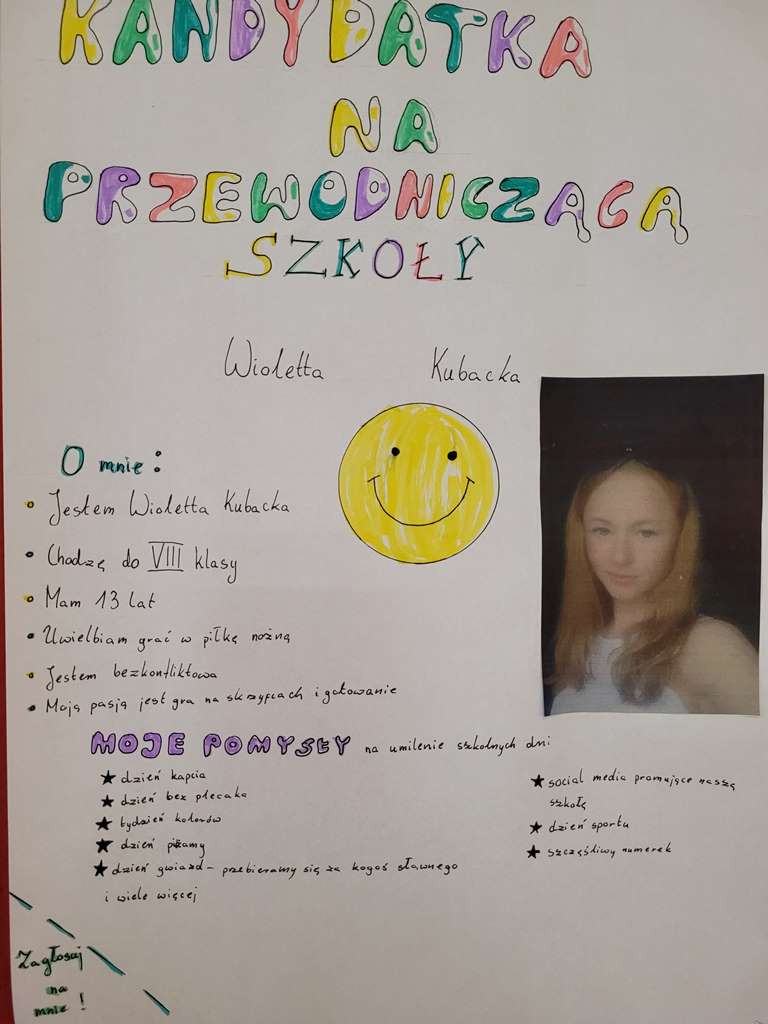 KANDYDATKA
NA
PRZEWODNICZĄCĄ
SZKOŁY
Wioletta Kubacka
O mnie:
Jestem Wioletta Kubacka
Chodzę do VIII klasy
Mam 13 lat
Uwielbiam grać w piłkę nożną
Jestem bezkonfliktowa
Moją pasją jest gra na skrzypcach i gotowanie
MOJE POMYSŁY na umilenie szkolnych dni
★ dzień kapcia
★ dzień bez plecaka
★ tydzień kolorów
★ dzień piżamy
★ dzień gwiazd - przebieramy się za kogoś sławnego
i wiele więcej
★ social media promujące naszą
szkołę
★ dzień sportu
★ szczęśliwy numerek
Zagłosuj
na
mnie!